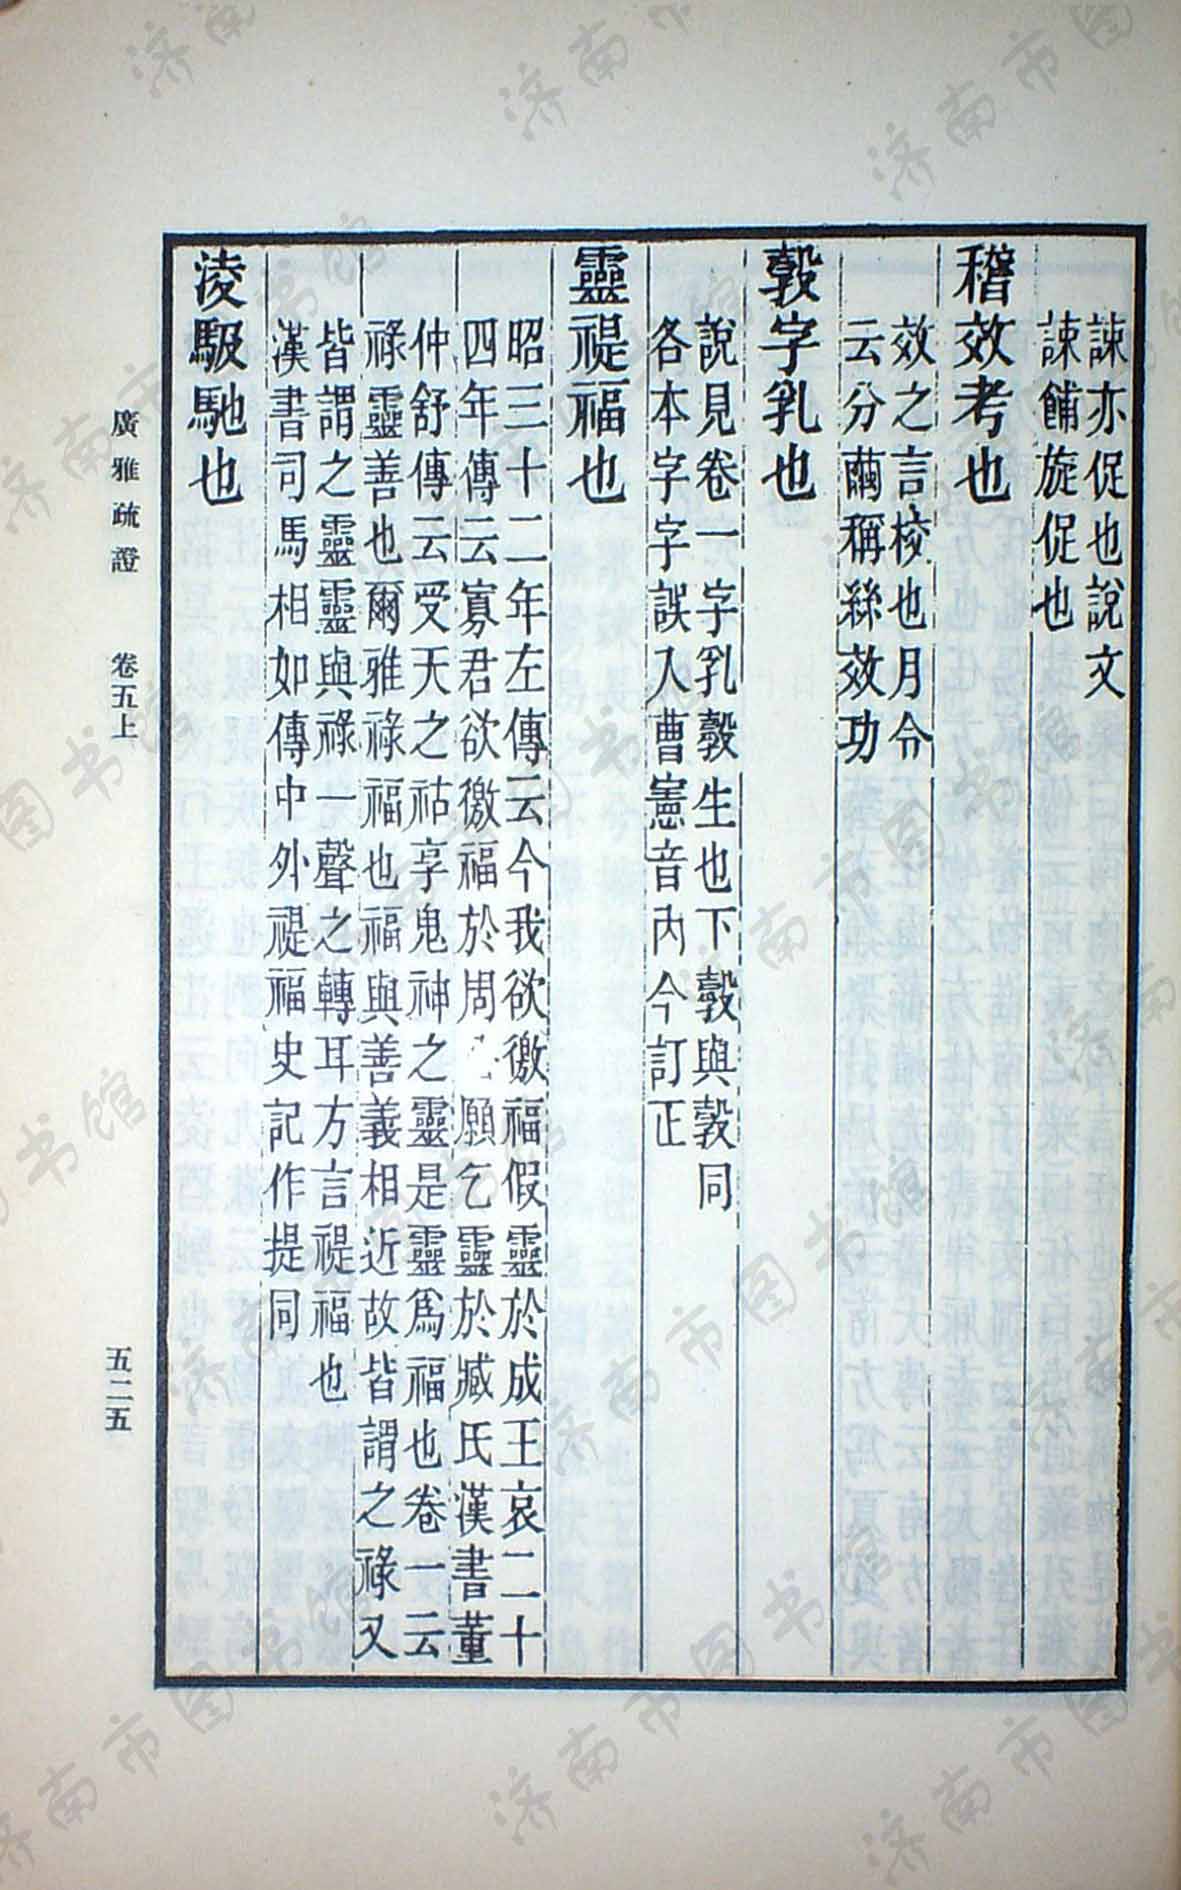 諫亦促也說文
諫餔旋促也
稽效考也
效之言校也月令
云分繭稱絲效功
㝅字乳也
說見卷一字乳㝅生也下㝅與㝅同
各本字字誤入曹憲音內今訂正
靈禔福也
昭三十二年左傳云今我欲徼福假靈於成王哀二十
四年傳云寡君欲徼福於周願乞靈於臧氏漢書董
仲舒傳云受天之祜享鬼神之靈是靈爲福也卷一云
祿靈善也爾雅祿福也福與善義相近故皆謂之祿又
皆謂之靈靈與祿一聲之轉耳方言禔福也
漢書司馬相如傳中外禔福史記作提同
淩馺馳也
廣雅疏證 卷五上
五二五
濟南市图书馆